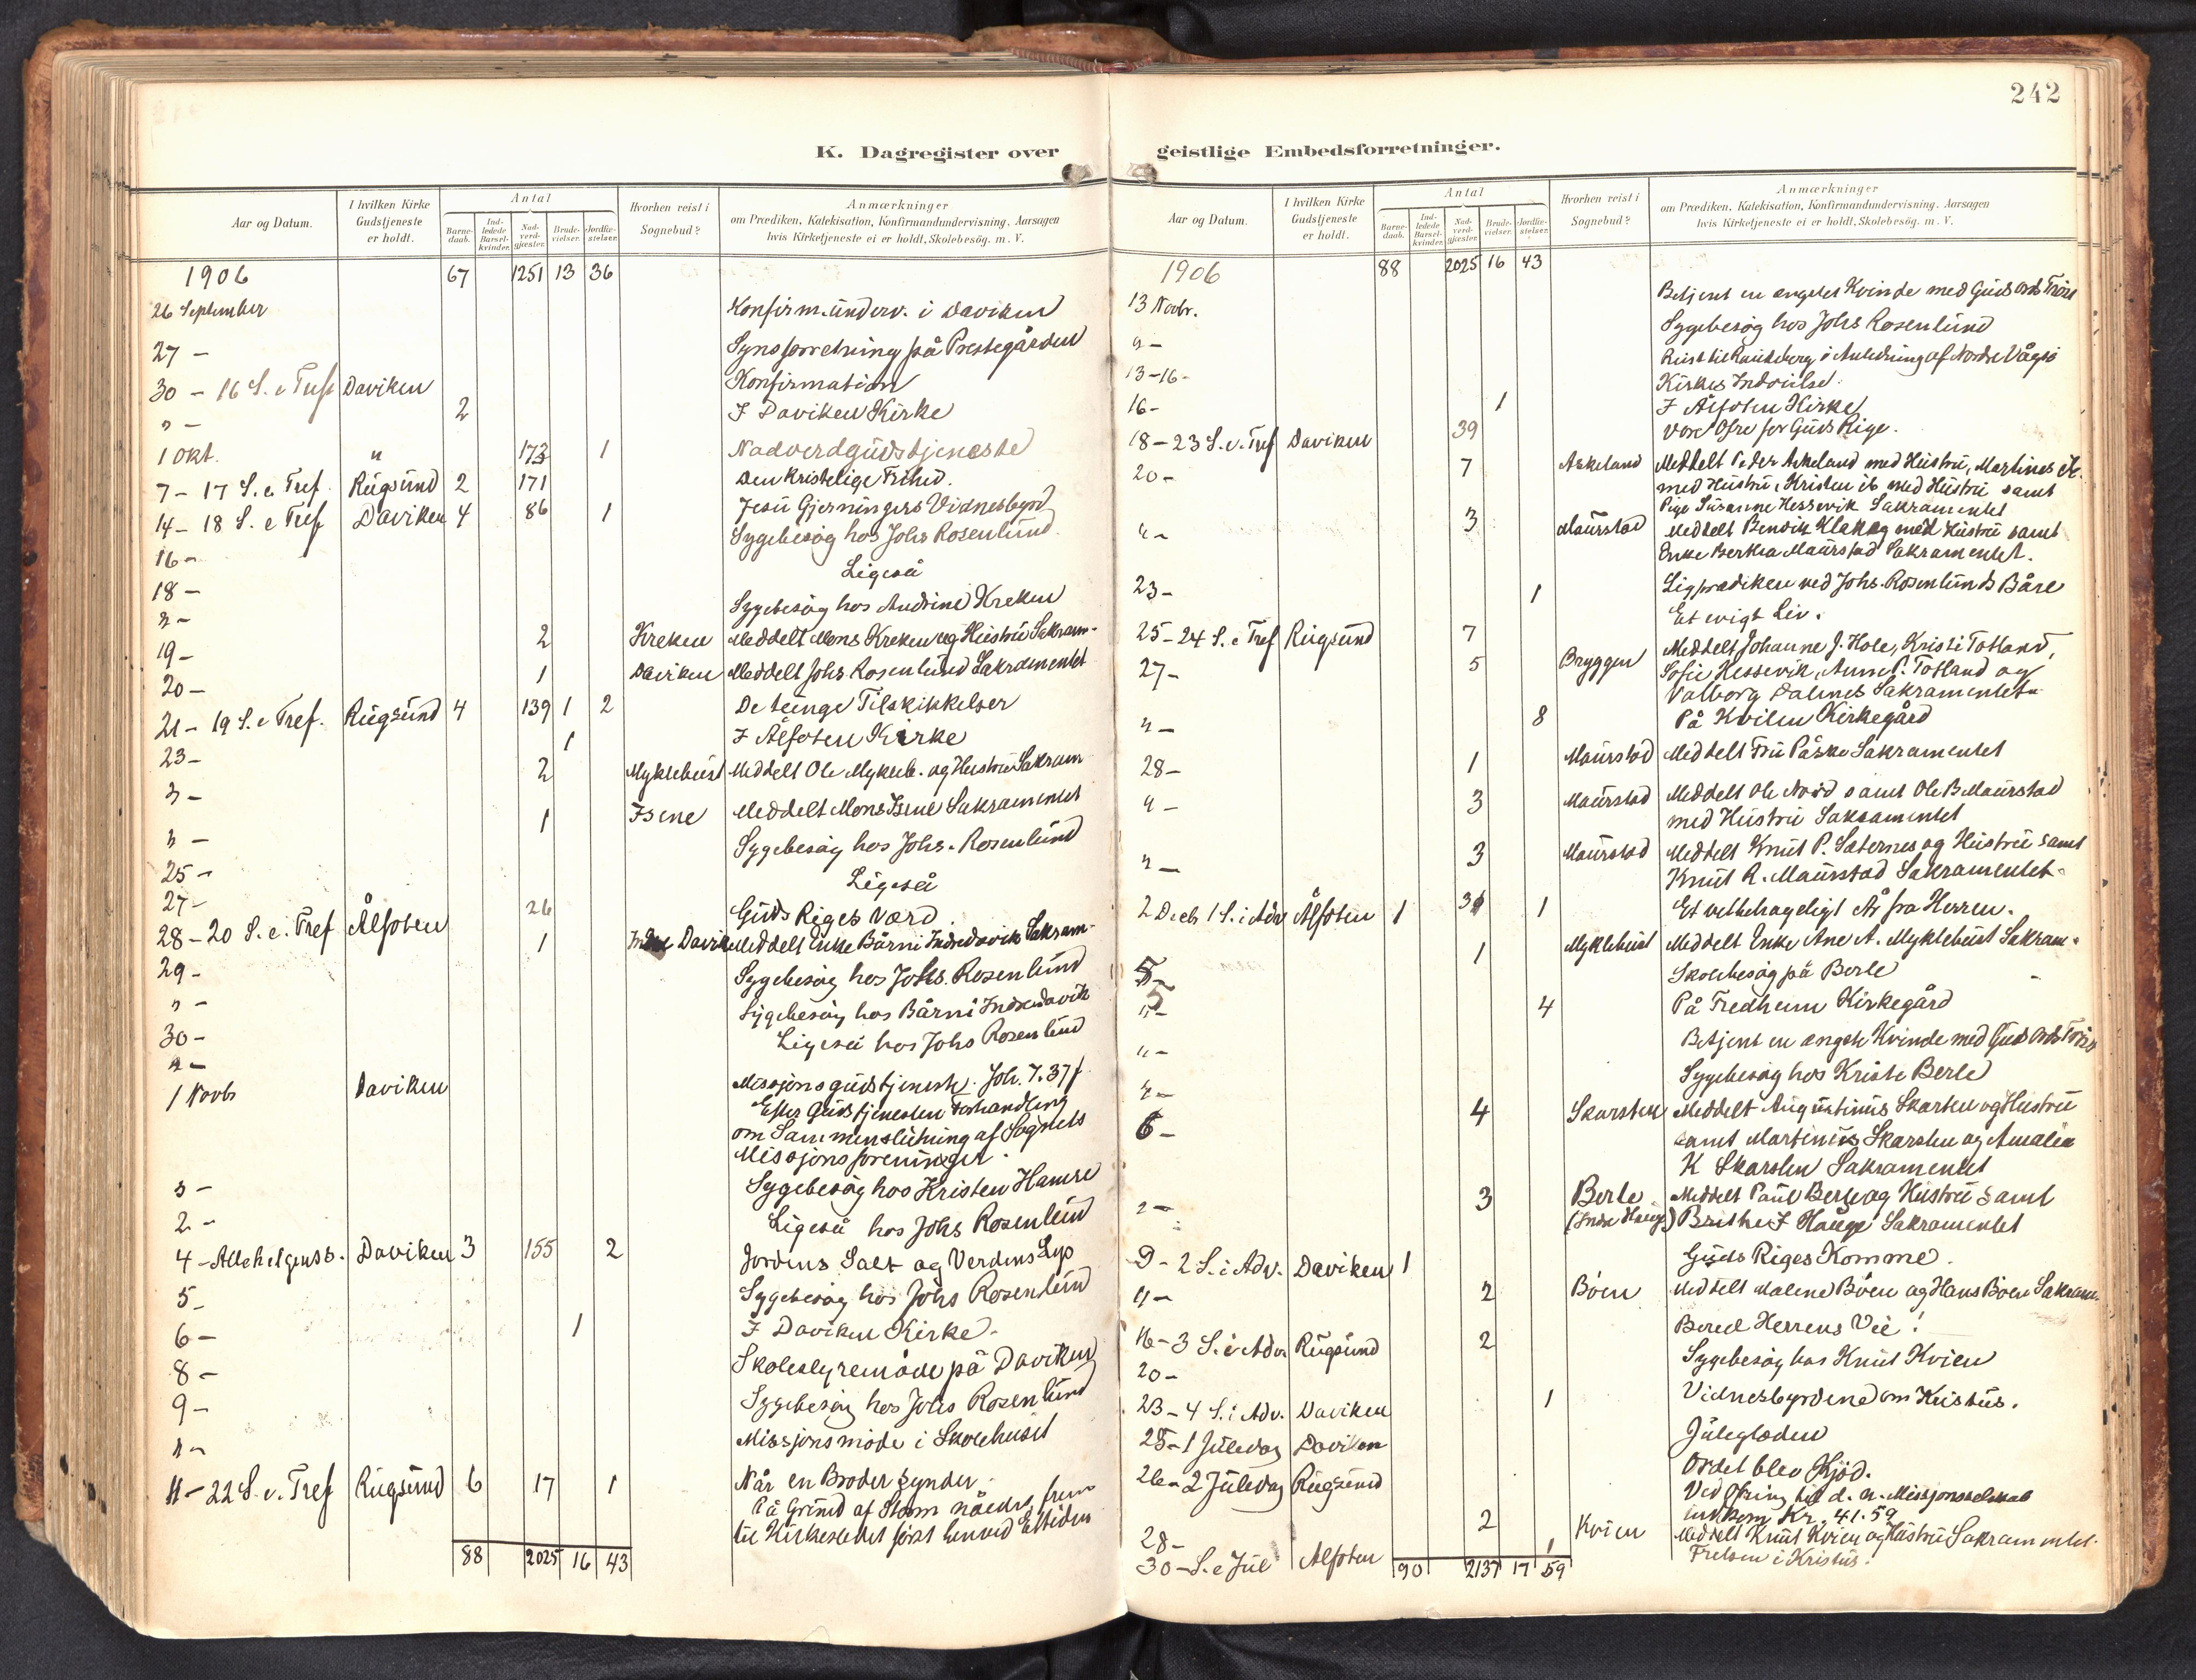 242
K. Dagregister over
Aar og Datum. I hvilken Kirke Gudstjeneste er holdt. Antal Hvorhen reist i Sognebud? Anmærkninger
om Prædiken, Katekisation, Konfirmandundervisning. Aarsagen
hvis Kirketjeneste ei er holdt, Skolebesög. m. V.
Barnedaab. Indledede Barselkvinder. Nadverdgjæster. Brudevielser. Jordfæstelser.
1906 67 1251 13 36
26 September Konfirm. underv. i Daviken
27 — Synsforretning på Prestegården
30 — 16 S. e Tref Daviken Konfirmation
" — 2 I Daviken Kirke
1 Okt. " 173 1 Nadverdgudstjeneste
7 — 17 S. e Tref Rugsund 2 171 Den kristelige Frihed.
14 — 18 S. e Tref Daviken 4 86 1 Jesu Gjerningers Vidnesbyrd
16 — Sygebesøg hos Johs Rosenlund.
18 — Ligeså
" — Sygebesøg hos Andrine Kreken
19 — 2 Kreken Meddelt Mons Kreken og Hustru Sakram-
20 — 1 Daviken Meddelt Johs Rosenlund Sakramentet
21 — 19 S. e Tref. Rugsund 4 139 1 2 De tunge Tilskikkelser
23 — 1 I Ålfoten Kirke
" — 2 Myklebust Meddelt Ole Mykleb. og Hustru Sakram
" — 1 Isene Meddelt Mons Isene Sakramentet
25 — Sygebesøg hos Johs. Rosenlund
27 — Ligeså
28 — 20 S. e. Tref Ålfoten 26 Guds Riges Værd.
29 — 1 Indre Davik Meddelt Enke Bårni Indredavik Sakram-
" — Sygebesøg hos Johs. Rosenlund
30 — Sygebesøg hos Bårni Indredavik
" — Ligeså hos Johs Rosenlund
1 Novbr Daviken Missjonsgudstjeneste. Joh. 7.37f
Efter Gudstjenesten Forhandling
om Sammenslutning af Sognets
Missjonsforeninger.
" — Sygebesøg hos Kristen Hamre
2 — Ligeså hos Johs Rosenlund
4 — Allehelgensd. Daviken 3 155 2 Jordens Salt og Verdens Lys
5 — Sygebesøg hos Johs Rosenlund
6 — 1 I Daviken Kirke.
8 — Skolestyremøde på Daviken
9 — Sygebesøg hos Johs Rosenlund
" — Missjonsmøde i Skolehuset
11 — 22 S. e. Tref Rugsund 6 17 1 Når en Broder synder.
På Grund af Storm nåedes frem
til Kirkestedet først henved
88 2025 16 43
geistlige Embedsforretninger.
Aar og Datum. I hvilken Kirke Gudstjeneste er holdt. Antal Hvorhen reist i Sognebud? Anmærkninger
om Prædiken, Katekisation, Konfirmandundervisning. Aarsagen
hvis Kirketjeneste ei er holdt, Skolebesög. m. V.
Barnedaab. Indledede Barselkvinder. Nadverdgjæster. Brudevielser. Jordfæstelser.
1906 88 2025 16 43
13 Novbr. Betjent en angstet Kvinde med Guds Ords Trøst
" — Sygebesøg hos Johs Rosenlund
13-16 — Reist til Raudeberg i Anledning af Nordre Vågsø
Kirkes Indvielse.
16 — 1 I Ålfoten Kirke
18 — 23 S. e. Tref Daviken 39 Vore Ofre for Guds Rige.
20 — 7 Askeland Meddelt Peder Askeland med Hustru, Martines
med Hustru, Kristen ib med Hustru samt
Pige Susanne Hessevik Sakramentet
" — 3 Maurstad Meddelt Bendik Klakeg med Hustru samt
Enke Bertha Maurstad Sakramentet.
23 — 1 Ligprædiken ved Johs. Rosenlunds Båre
Et evigt Liv.
25 — 24 S. e Tref Rugsund 7
27 — 5 Bryggen Meddelt Johanne J. Hole, Kristi Totland,
Sofie Hessevik, Anne P. Totland og
Valborg Dalnes Sakramentet
" — 8 På Kvilen Kirkegård
28 — 1 Maurstad Meddelt Fru Påske Sakramentet
" — 3 Maurstad Meddelt Ole Nord samt Ole B Maurstad
med Hustru Sakramentet
" — 3 Maurstad Meddelt Knut P. Sæternes og Hustru samt
Knut R. Maurstad Sakramentet.
2 Decb 1 S. i Adv Ålfoten 1 1 Et velbehageligt År fra Herren.
1 Myklebust Meddelt Enke Ane A. Myklebust Sakram.
5 — Skolebesøg på Berle
" — 4 På Fredheim Kirkegård
" — Betjent en angste Kvinde med Guds Ords Trøst
" — Sygebesøg hos Kriste Berle
6 — 4 Skarsten Meddelt Augustinus Skarsten og Hustru
samt Martinus Skarsten og Amalia
K Skarsten Sakramentet
" — 3 Berle (Indre Hauge) Meddelt Paul Berle og Hustru samt
Brithe J Hauge Sakramentet
9 — 2 S. i Adv. Daviken 1 Guds Riges Komme.
" — 2 Bøen Meddelt Malene Bøen og Hans Bøen Sakram.
16 — 3 S. i Adv. Rugsund 2 Bered Herrens Vei!
20 — Sygebesøg hos Knut Kvien
23 — 4 S. i Adv. Daviken 1 Vidnesbyrdene om Kristus.
25 — 1 Juledag Daviken Juleglæden
26 — 2 Juledag Rugsund Ordet blev Kjød.
Ved Ofring til d. n. Missjonsselskab
indkom Kr. 41.59
28 — 2 Kvien Meddelt Knut Kvien og Hustru Sakramentet.
30 — S. e Jul Alfoten 1 Frelsen i Kristus.
90 2137 17 59